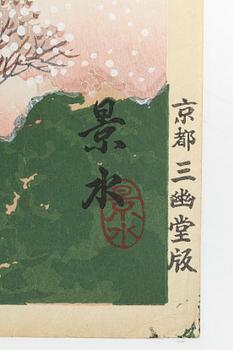 京都三幽堂版
景水
景水